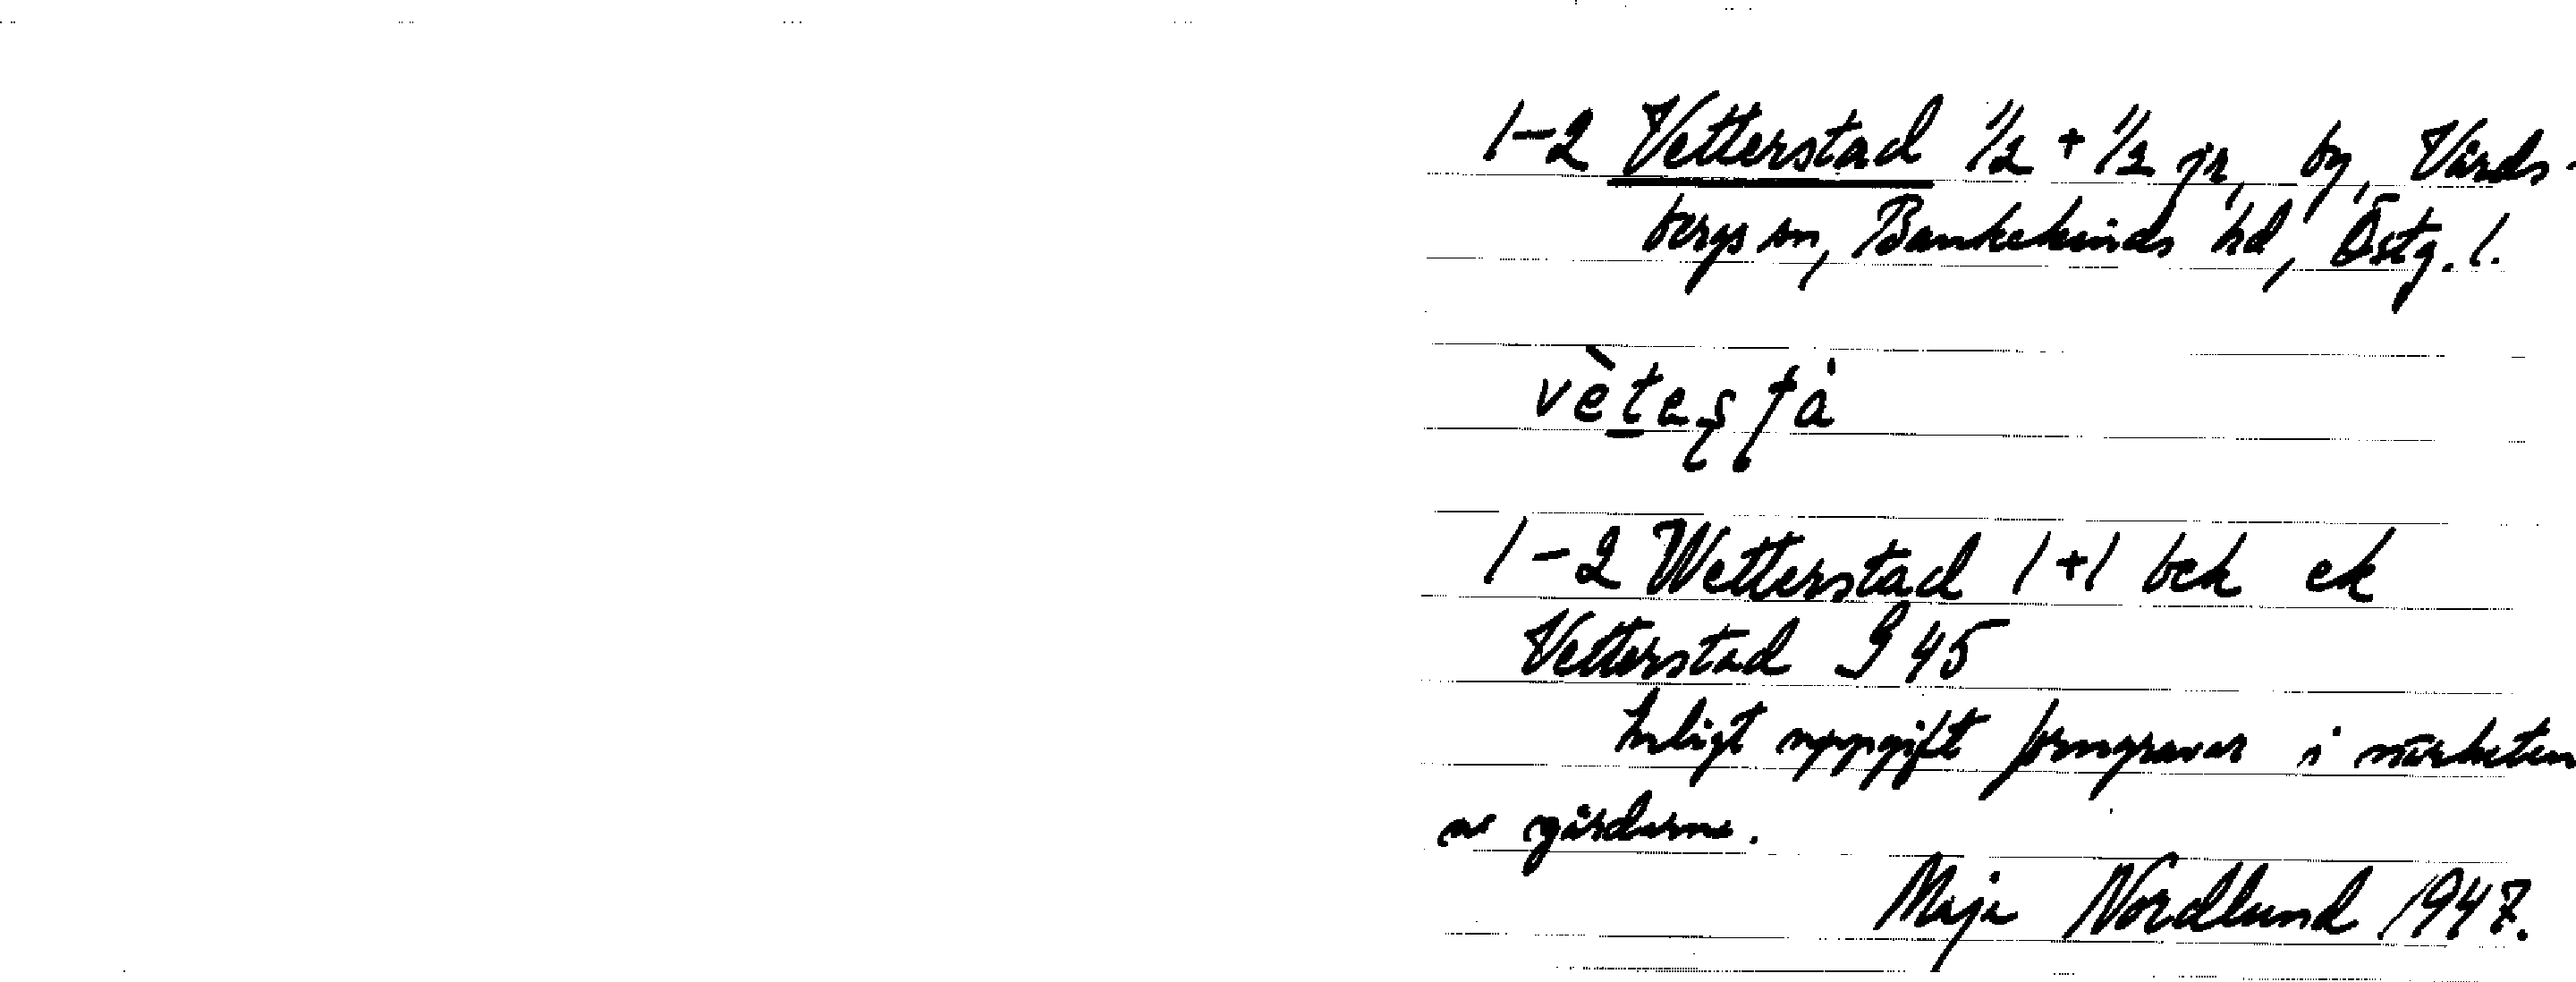 1-2 Vetterstad 1/2 + 1/2 jr, by, Vårds-
bergs sn, Bankekinds hd, Östg. l.
1-2 Wetterstad 1+1 bek ek
Vetterstad G 45
Enligt uppgift forngravar i närheten
av gårdarna.
Maja Nordlund 1947.